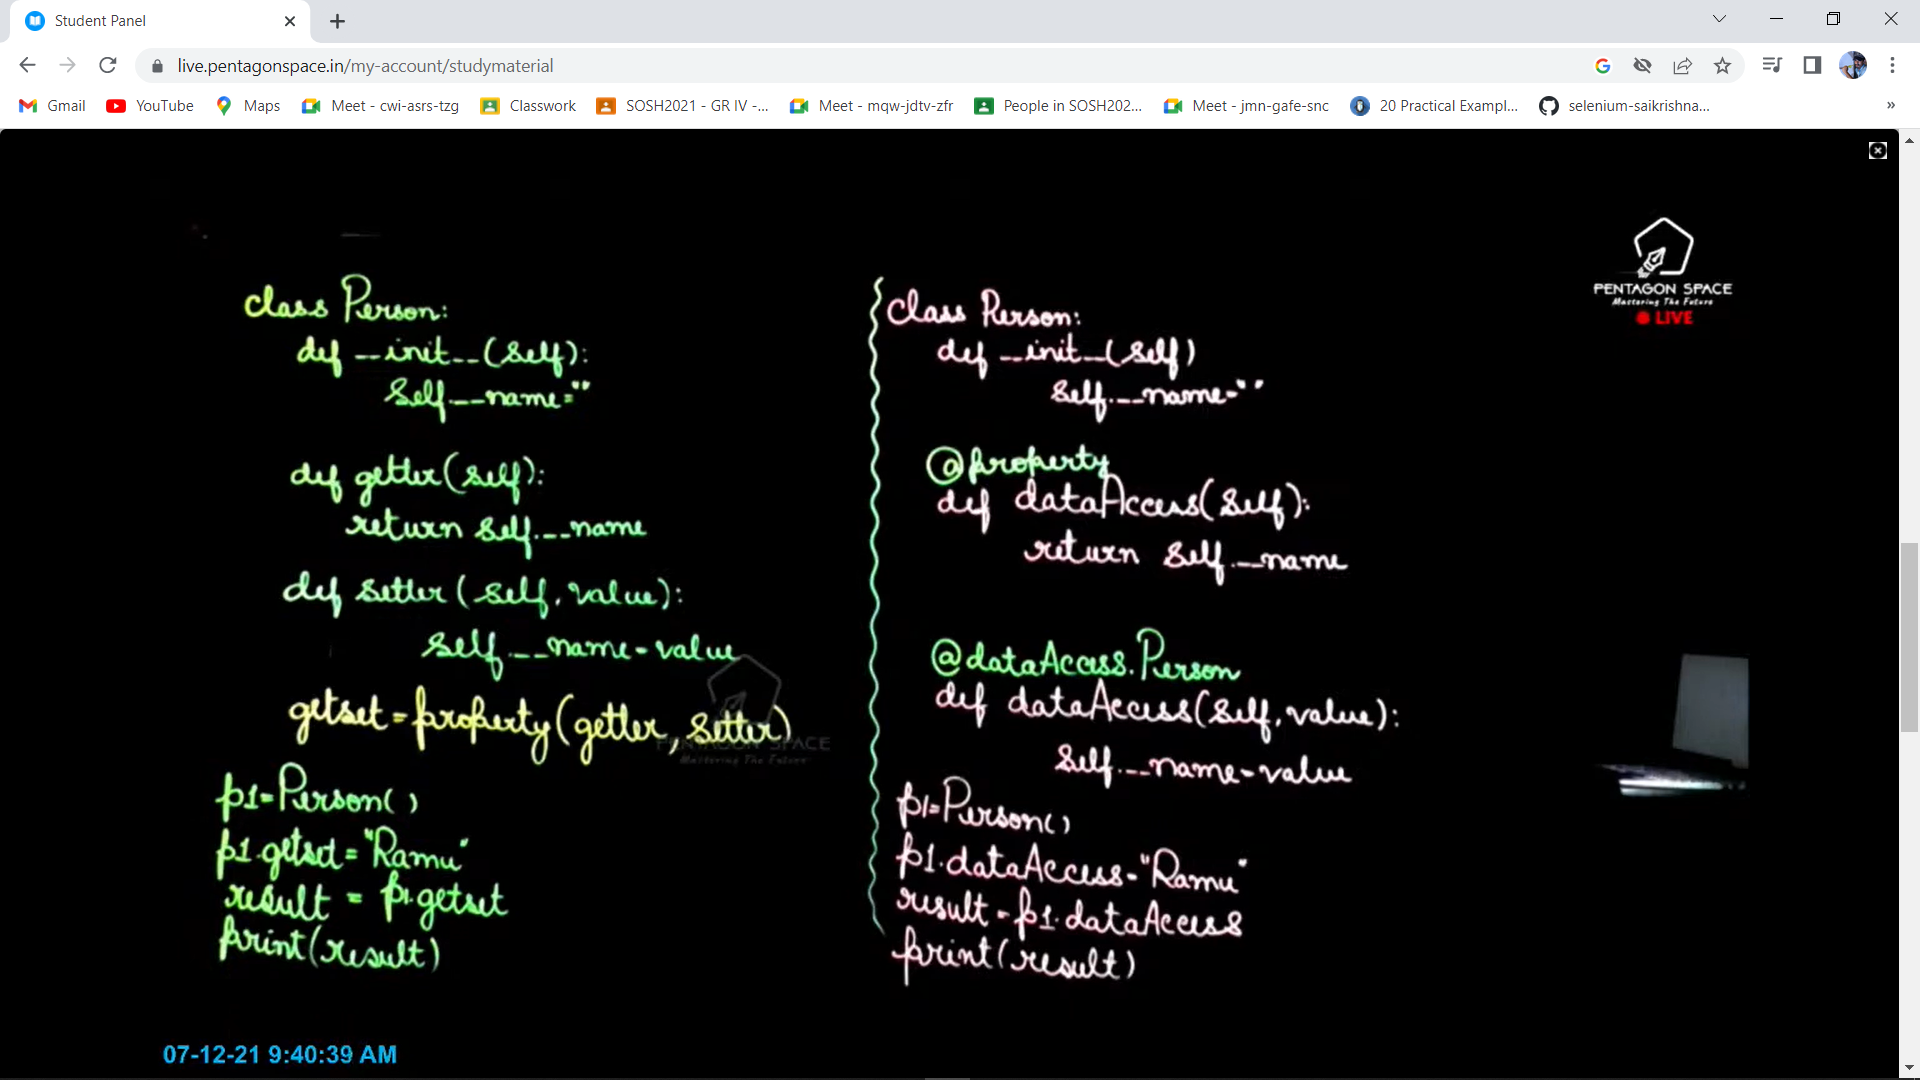 Student Panel
live.pentagonspace.in/my-account/studymaterial
Gmail YouTube Maps Meet - cwi-asrs-tzg Classwork SOSH2021 - GR IV -... Meet - mqw-jdtv-zfr People in SOSH202... Meet - jmn-gafe-snc 20 Practical Exampl... selenium-saikrishna... »
PENTAGON SPACE
Mastering The Future
LIVE
class Person:
def __init__(self):
self.__name=""
def getter(self):
return self.__name
def setter(self,value):
self.__name=value
getset=property(getter,setter)
p1=Person()
p1.getset="Ramu"
result = p1.getset
print(result)
class Person:
def __init__(self)
self.__name=""
@property
def dataAccess(self):
return self.__name
@dataAccess.Person
def dataAccess(self,value):
self.__name=value
p1=Person()
p1.dataAccess="Ramu"
result=p1.dataAccess
print(result)
PENTAGON SPACE
Mastering The Future
07-12-21 9:40:39 AM